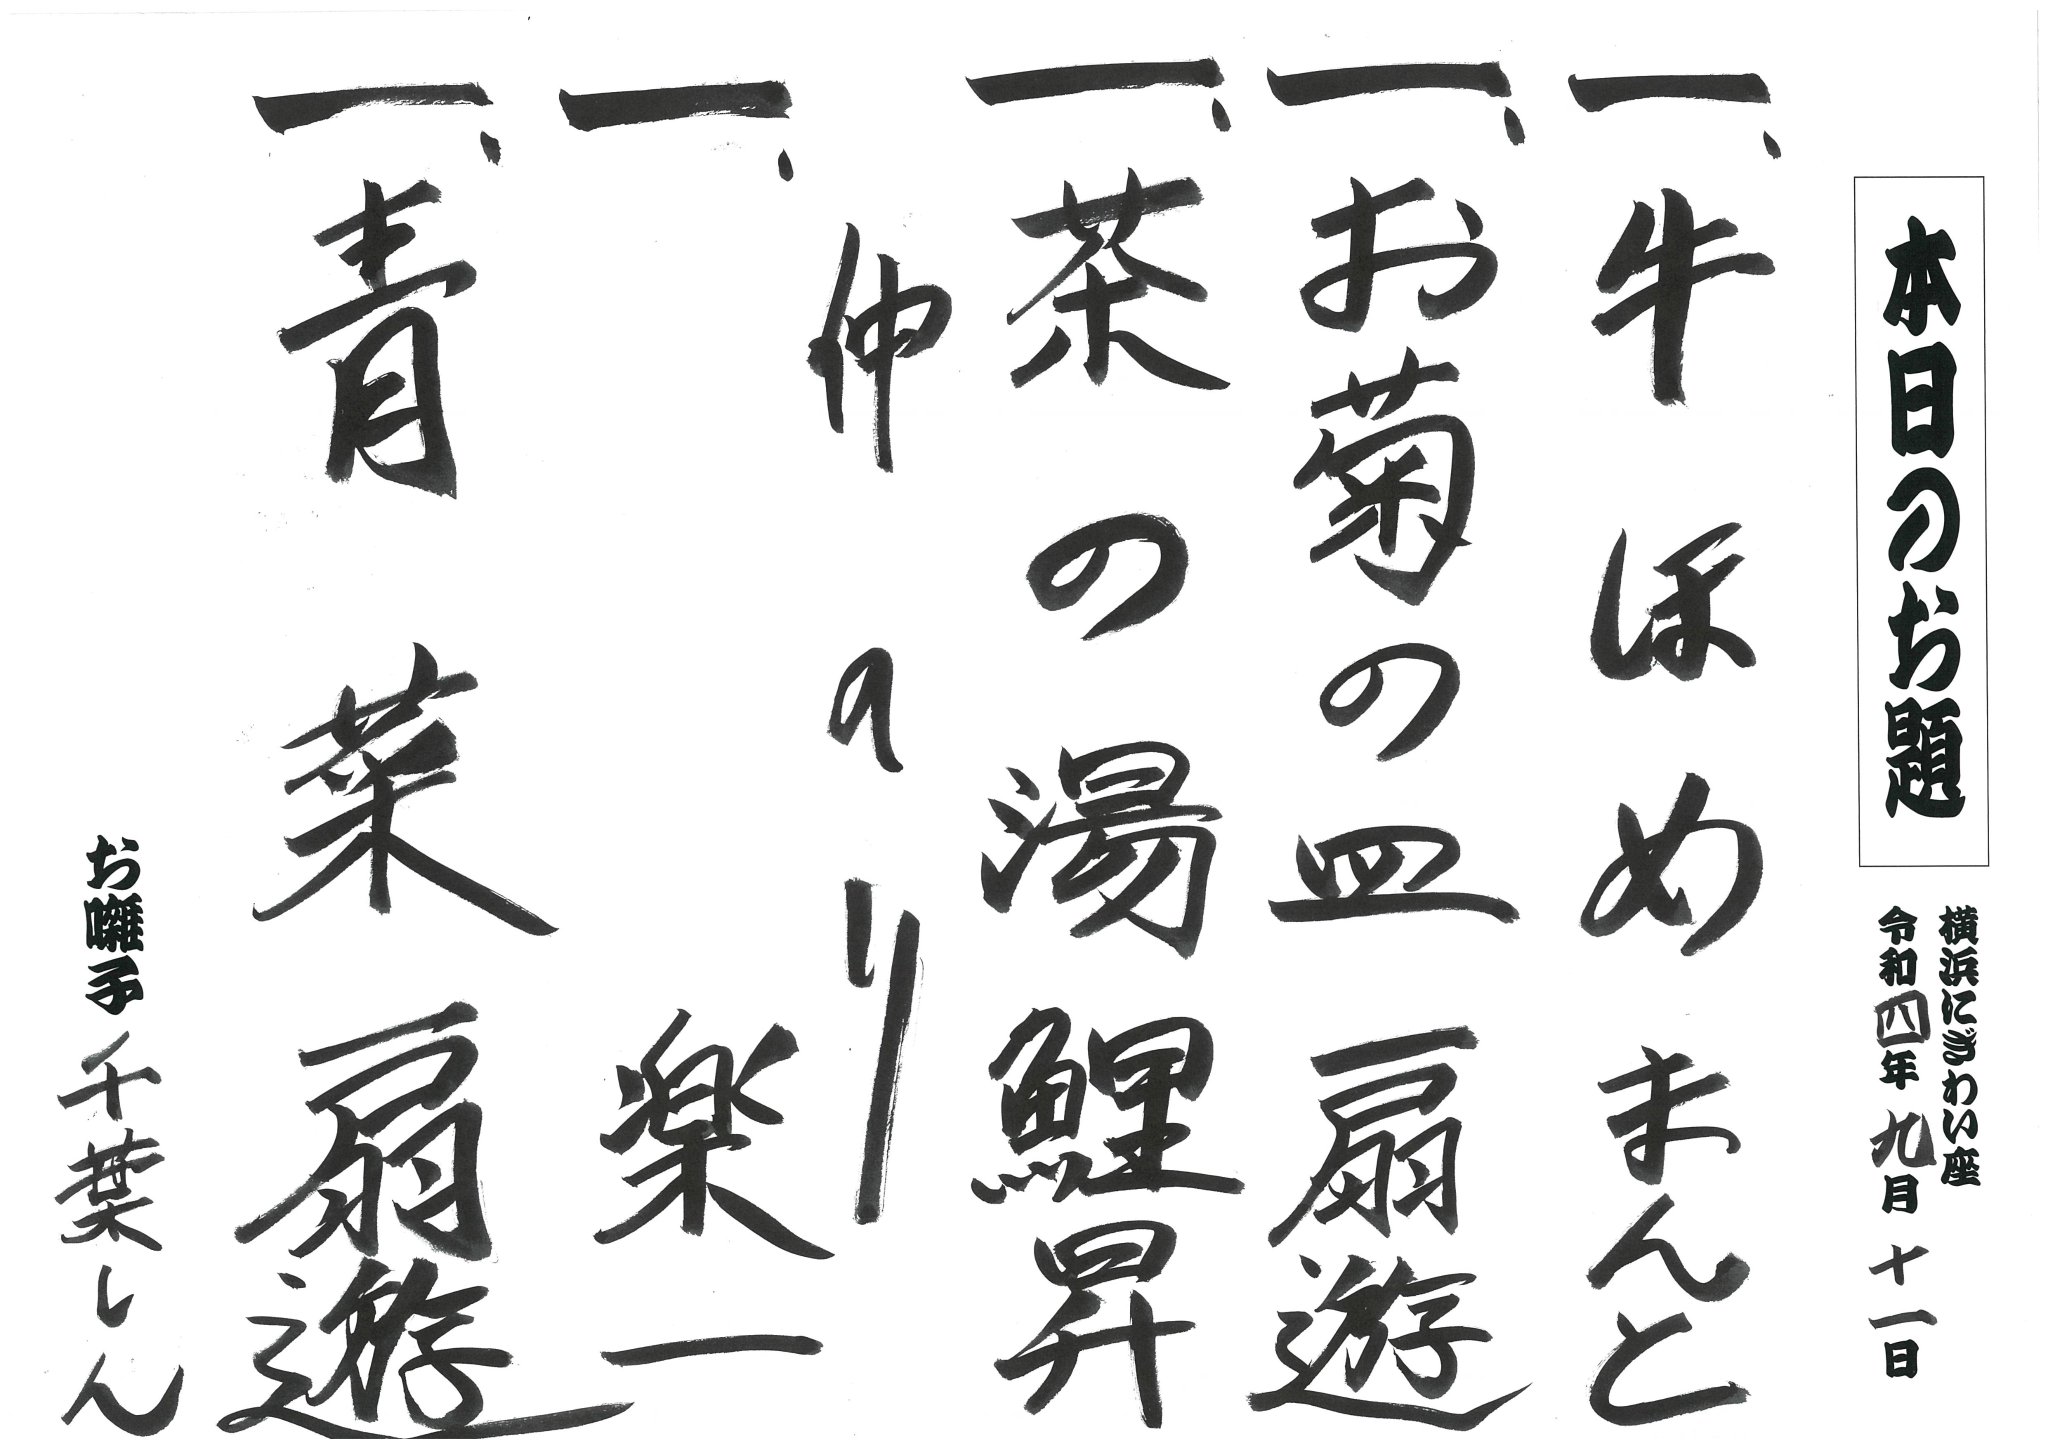 本日のお題
横浜にぎわい座
令和四年九月十一日
一、牛ほめ まんと
一、お菊の皿 扇遊
一、茶の湯 鯉昇
仲入り
一、楽一
一、青菜 扇遊
お囃子 千葉しん